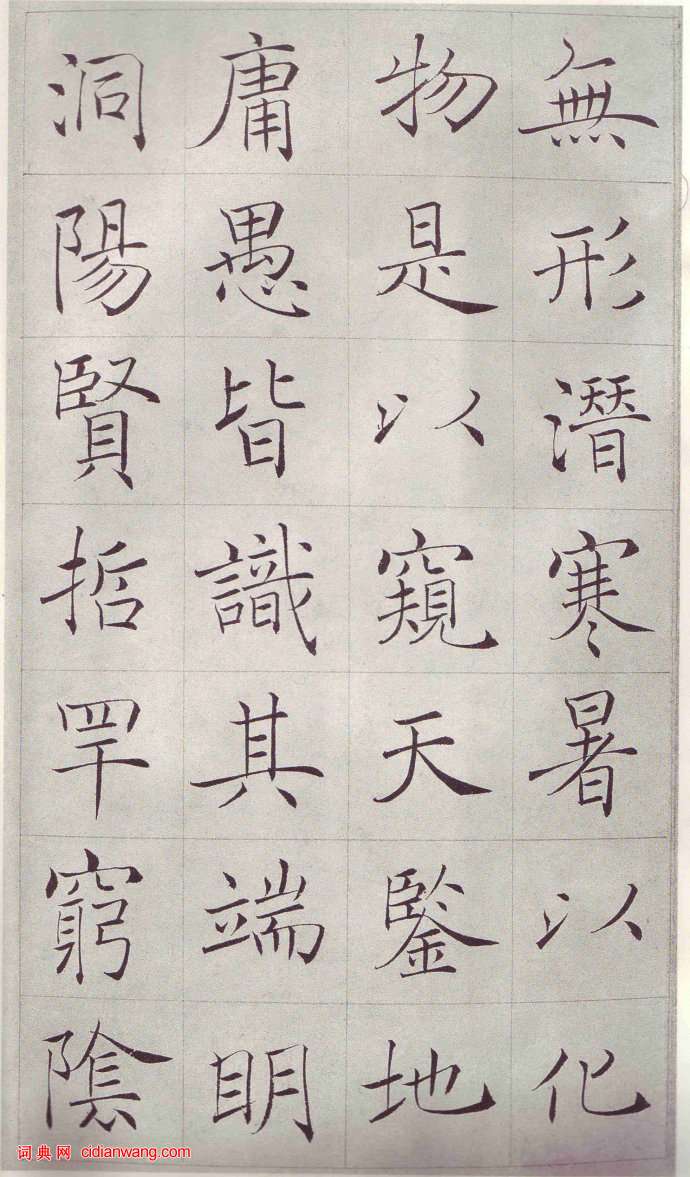 無形潛寒暑以化
物是以窺天鑒地
庸愚皆識其端明
陰洞陽賢哲罕窮
词典网 cidianwang.com